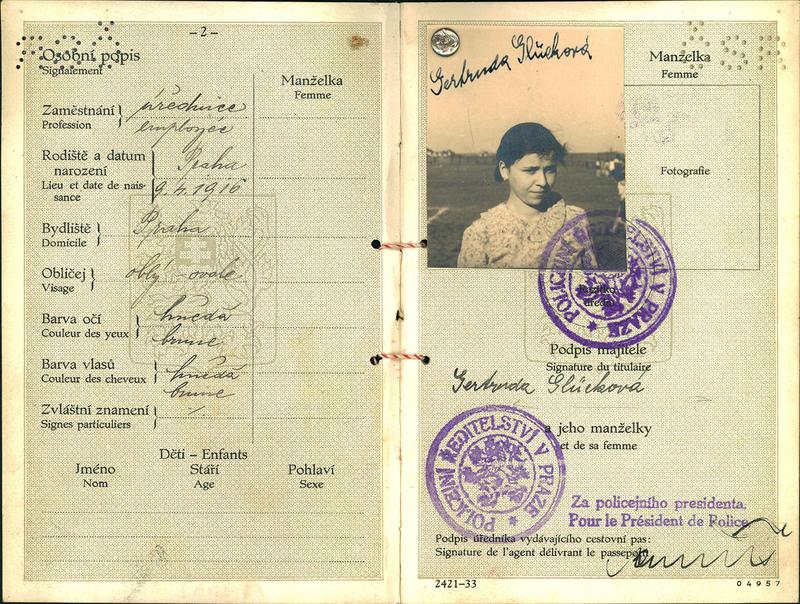 – 2 –
Osobní popis
Signalement
Manželka
Femme
Zaměstnání
Profession
úřednice
employée
Rodiště a datum
narození
Lieu et date de nais-
sance
Praha
1916
Bydliště
Domicile
Praha
Obličej
Visage
oblý – ovale
Barva očí
Couleur des yeux
hnědá
brune
Barva vlasů
Couleur des cheveux
hnědá
brune
Zvláštní znamení
Signes particuliers
Děti – Enfants
Jméno Stáří Pohlaví
Nom Age Sexe
Gertruda Glücková
Manželka
Femme
Fotografie
POLICEJNÍ ŘEDITELSTVÍ V PRAZE
Podpis majitele
Signature du titulaire
Gertruda Glücková
a jeho manželky
et de sa femme
POLICEJNÍ ŘEDITELSTVÍ V PRAZE
Za policejního presidenta:
Pour le Président de Police
Podpis úředníka vydávajícího cestovní pas:
Signature de l'agent délivrant le passeport
2421–33
04957